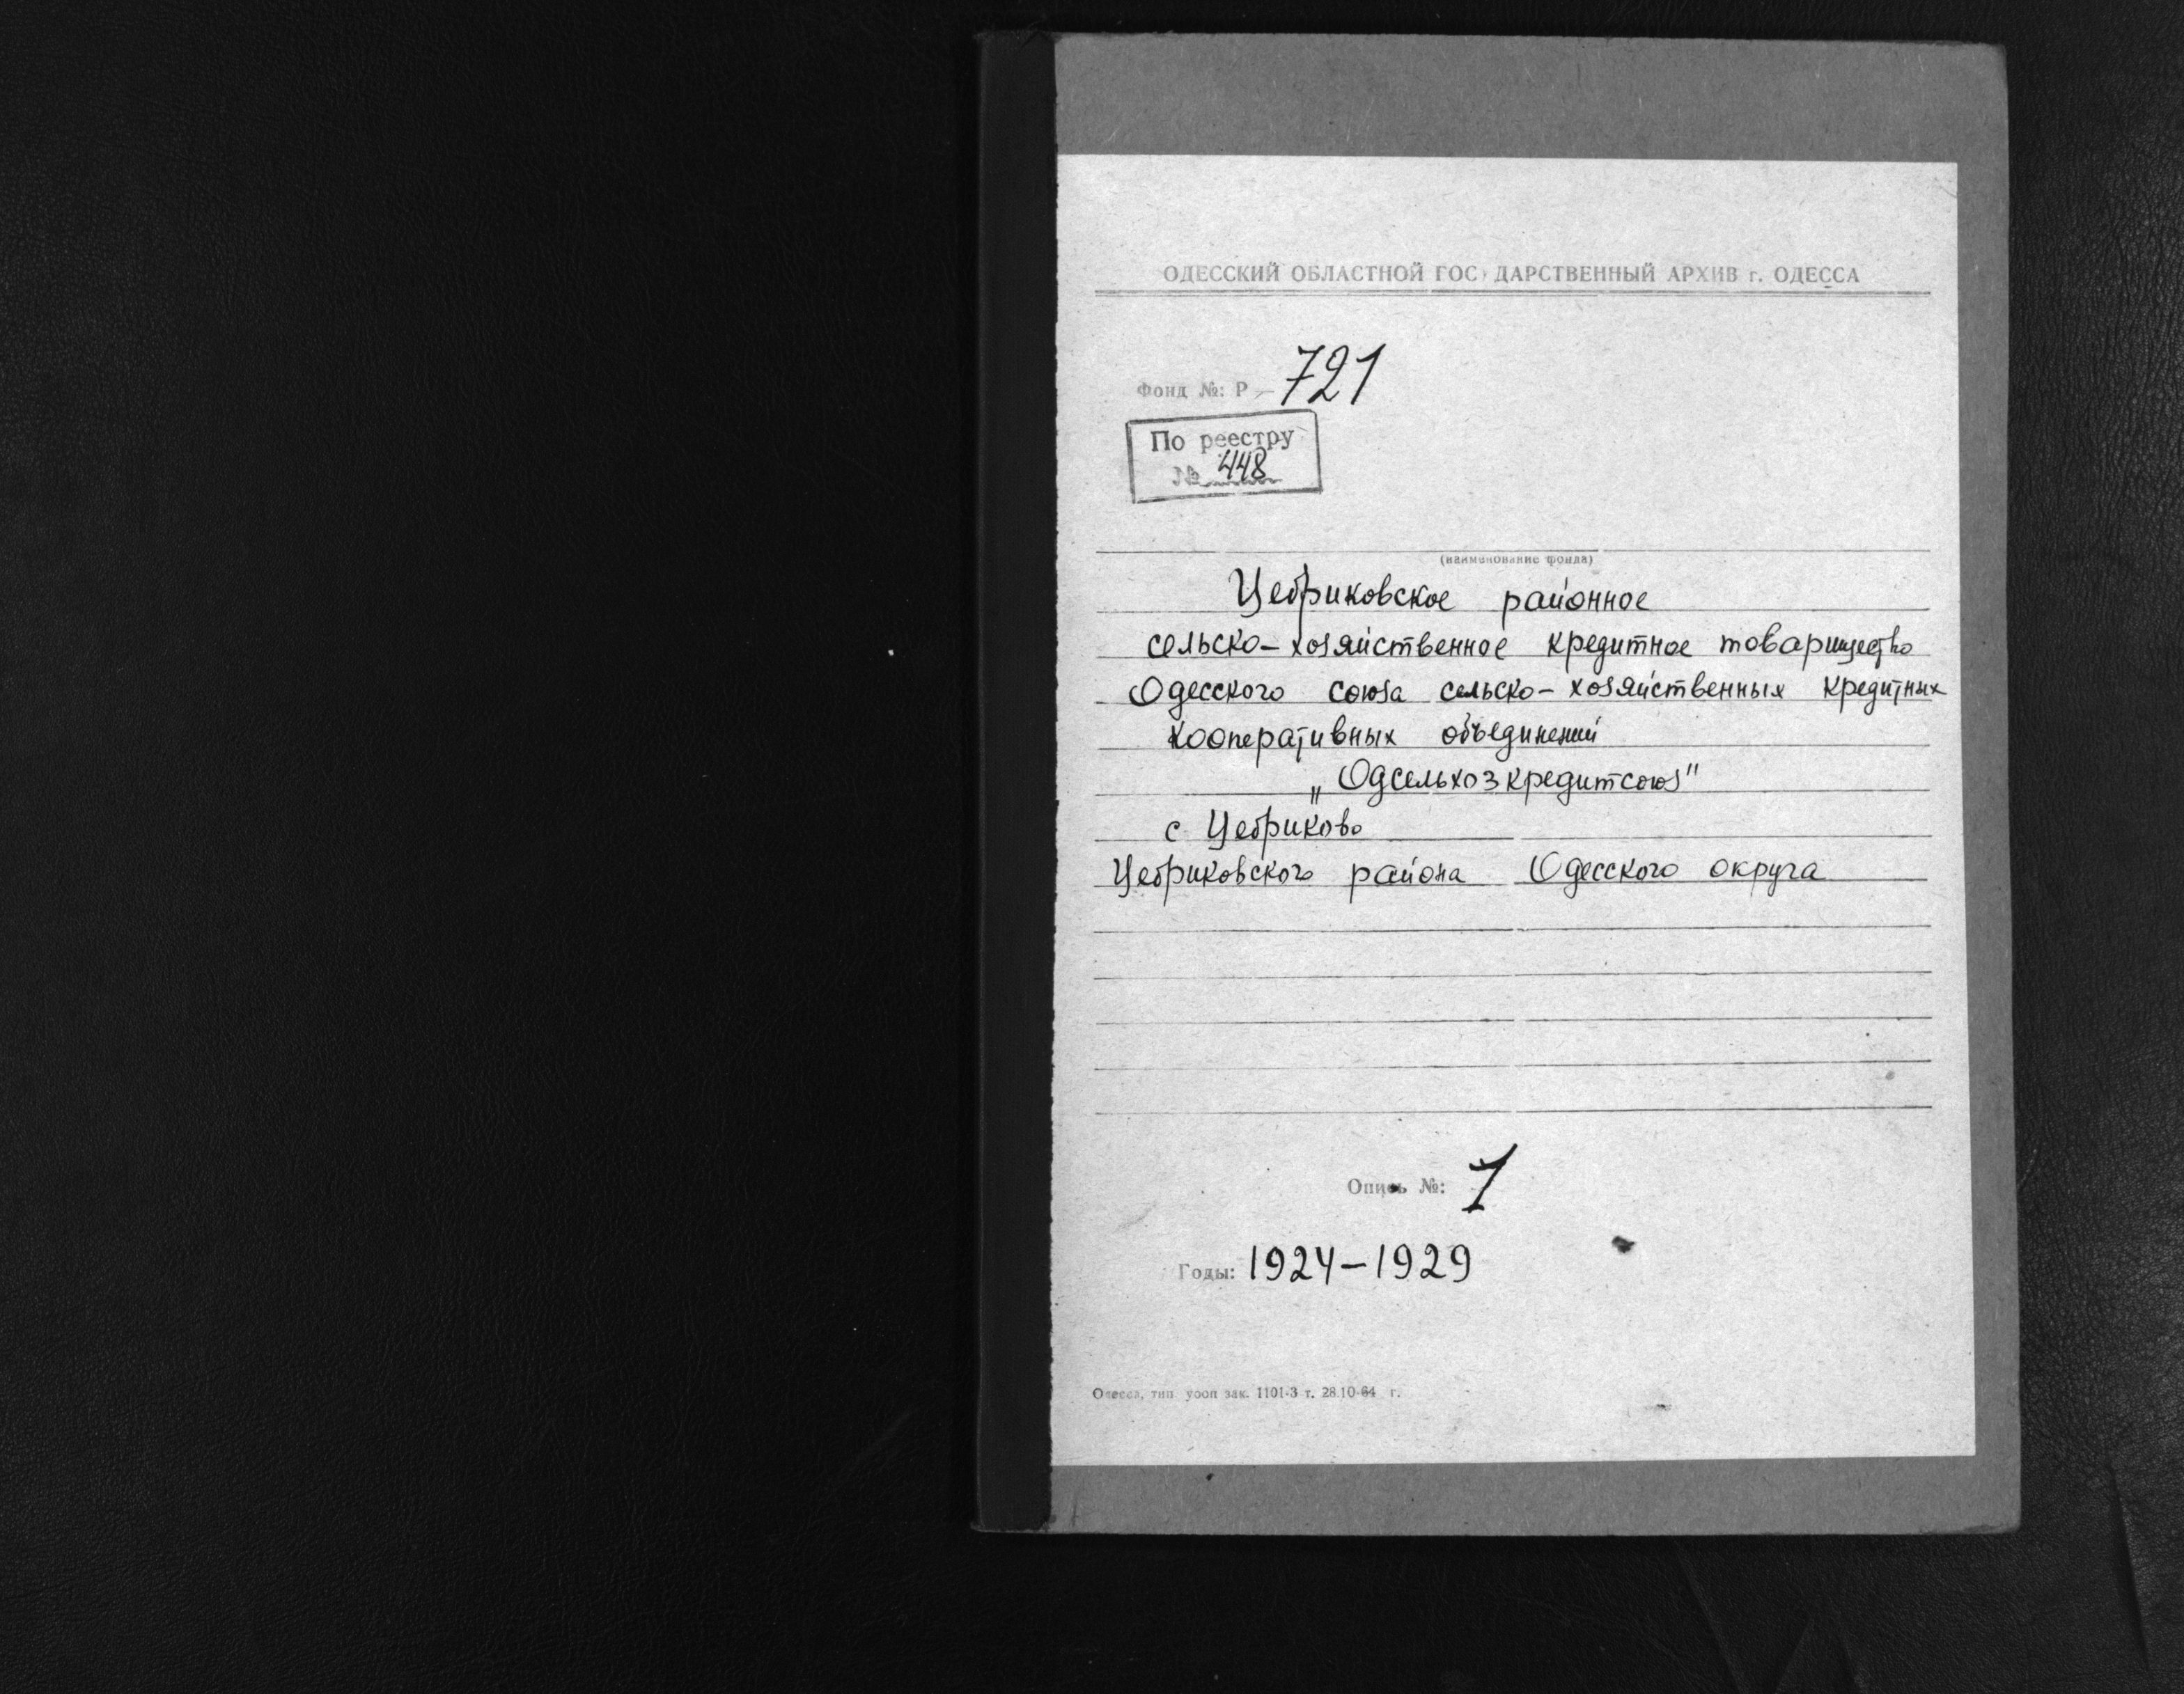 ОДЕССКИЙ ОБЛАСТНОЙ ГОС ДАРСТВЕННЫЙ АРХИВ г. ОДЕССА
Фонд №: Р — 721
По реестру
№ 448
(наименование фонда)
Цебриковское районное
сельско-хозяйственное кредитное товарищество
Одесского союза сельско-хозяйственных кредитных
кооперативных объединений
„Одсельхозкредитсоюз"
с Цебриково
Цебриковского района Одесского округа
Опись №: 1
Годы: 1924-1929
Одесса, тип уооп зак. 1101-3 т. 28.10-64 г.